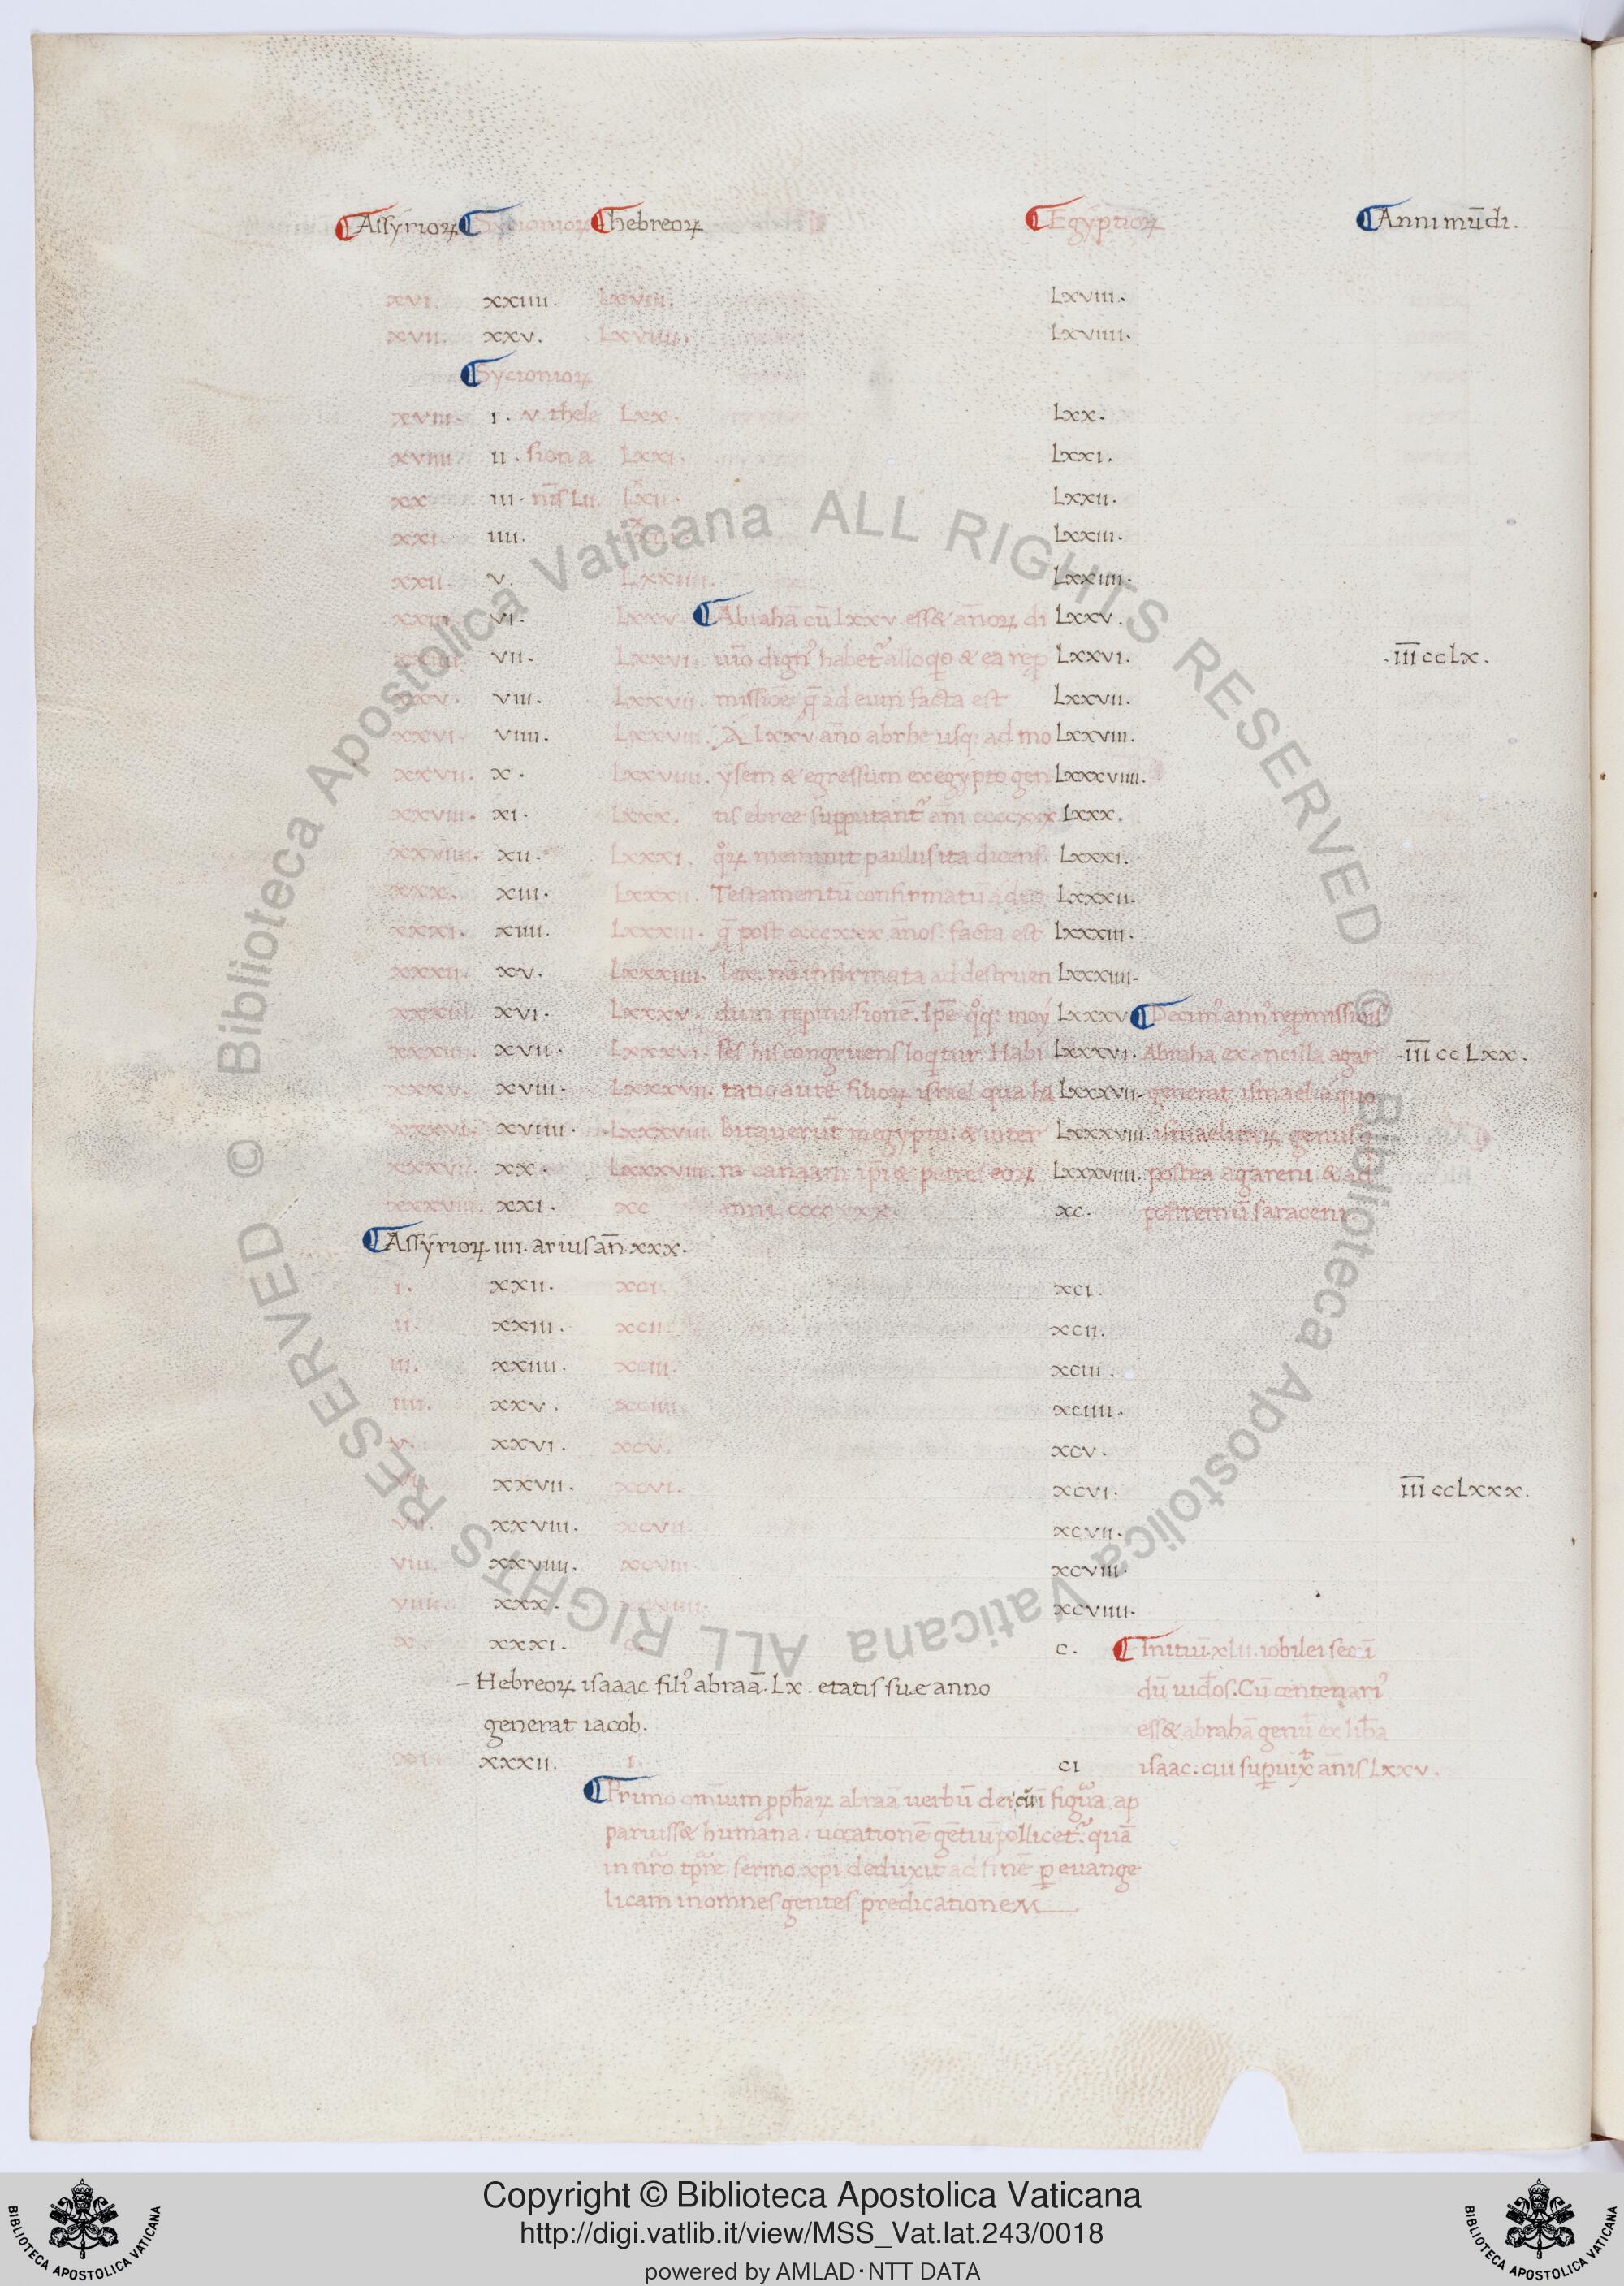 Assyrioꝝ Sycionioꝝ hebreoꝝ Egyptioꝝ Anni mūdi.
xvi. xxiiii. Lxviii. Lxviii.
xvii. xxv. Lxviiii. Lxviiii.
Sycionioꝝ
xviii. i. v thele Lxx. Lxx.
xviiii ii. sion a Lxxi. Lxxi.
xx iii. nīs Lii Lxii. Lxxii.
xxi. iiii. Lxxiii.
xxii. v. Lxxiiii. Lxxiiii.
xxiii. vi. Lxxv. Abrahā cū Lxxv. ess& annoꝝ di Lxxv.
vii. Lxxvi. uīo dignꝰ habet᷑ alloqͦo & ea rep Lxxvi. .iii̅ccLx.
xxv. viii. Lxxvii. missiōe q̄ ad eum facta est Lxxvii.
xxvi. viiii. Lxxviii. A Lxxv anno abrhe usq; ad mo Lxxviii.
xxvii. x. Lxxviiii. ysem & egressum ex egypto gen Lxxxviiii.
xxviii. xi. Lxxx. tis ebree supputant᷑ anī ccccxxx Lxxx.
xxviiii. xii. Lxxxi. qͦꝝ meminit paulus ita dicens. Lxxxi.
xxx. xiii. Lxxxii. Testamentū confirmatū a deo Lxxxii.
xxxi. xiiii. Lxxxiii. q̄ post ccccxxx. annos. facta est Lxxxiii.
xxxii. xv. Lxxxiiii. lex. nō infirmata ad destruen Lxxxiiii.
xxxiii. xvi. Lxxxv. dum repmissionē. Ipē qͦq; moy Lxxxv Decimꝰ annꝰ repmissiois
xxxiiii. xvii. Lxxxvi. ses his congruens loq̄tur. Habi Lxxxvi. Abraha ex ancilla agar .iii̅ccLxx.
xxxv. xviii. Lxxxvii. tatio autē filioꝝ israel qua ha Lxxxvii. generat ismael a quo
xxxvi. xviiii. Lxxxviii. bitauerūt in egypto: & inter Lxxxviii. ismaelitaꝝ genus q̄
xxxvii. xx. Lxxxviiii. ra canaam ipī & patres eoꝝ Lxxxviiii. postea agareni & ad
xxxviii. xxi. xc anni ccccxxx. xc. postremū saraceni
Assyrioꝝ iiii. arius an̄. xxx.
i. xxii. xci. xci.
ii. xxiii. xcii. xcii.
iii. xxiiii. xciii. xciii.
iiii. xxv. xciiii. xciiii.
v. xxvi. xcv. xcv.
xxvii. xcvi. xcvi. iii̅ccLxxx.
vii. xxviii. xcvii. xcvii.
viii. xxviiii. xcviii. xcviii.
viiii. xxx. xcviiii. xcviiii.
x. xxxi. c. Initiū xlii. iobilei sec̄i
Hebreoꝝ isaaac filiꝰ abraā. Lx. etatis sue anno dū iudeos. Cū centenariꝰ
generat iacob. ess& abrahā genuit ex libīa
xi xxxii. i. ci isaac. cui supuixit annis Lxxv.
Primo omnium p̄phaꝝ abraā uerbū dei cū in figura ap
paruiss& humana. uocationē gētiū pollicet᷑. quā
in nr̄o tp̄re sermo xp̄i deduxit ad finē ꝑ euange
licam in omnes gentes predicationeM
Copyright © Biblioteca Apostolica Vaticana
http://digi.vatlib.it/view/MSS_Vat.lat.243/0018
powered by AMLAD·NTT DATA
© Biblioteca Apostolica Vaticana ALL RIGHTS RESERVED
© Biblioteca Apostolica Vaticana ALL RIGHTS RESERVED
BIBLIOTECA APOSTOLICA VATICANA
BIBLIOTECA APOSTOLICA VATICANA